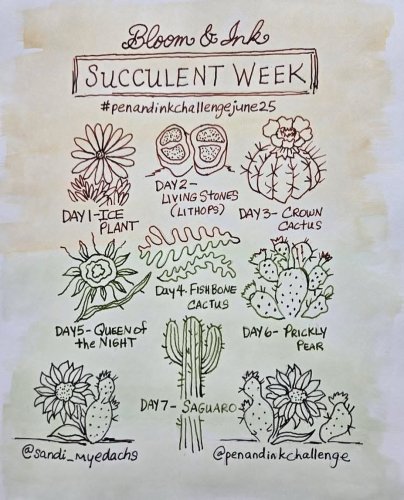 Bloom & Ink
SUCCULENT WEEK
#penandinkchallengejune25
DAY 1-ICE
PLANT
DAY 2-
LIVING STONES
(LITHOPS)
DAY 3- CROWN
CACTUS
DAY 4- FISHBONE
CACTUS
DAY 5- QUEEN of
the NIGHT
DAY 6- PRICKLY
PEAR
DAY 7- SAGUARO
@sandi_myedach9
@penandinkchallenge